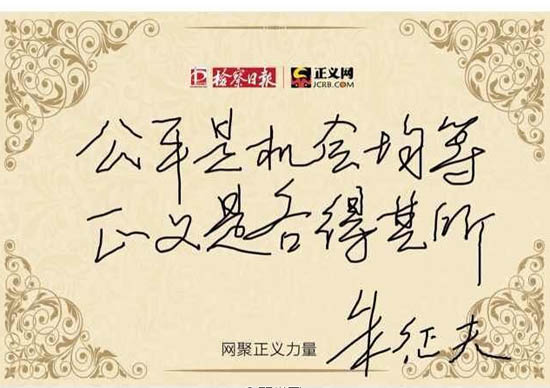 检察日报 正义网
JCRB.COM
公平是机会均等
正义是各得其所
网聚正义力量
朱征夫